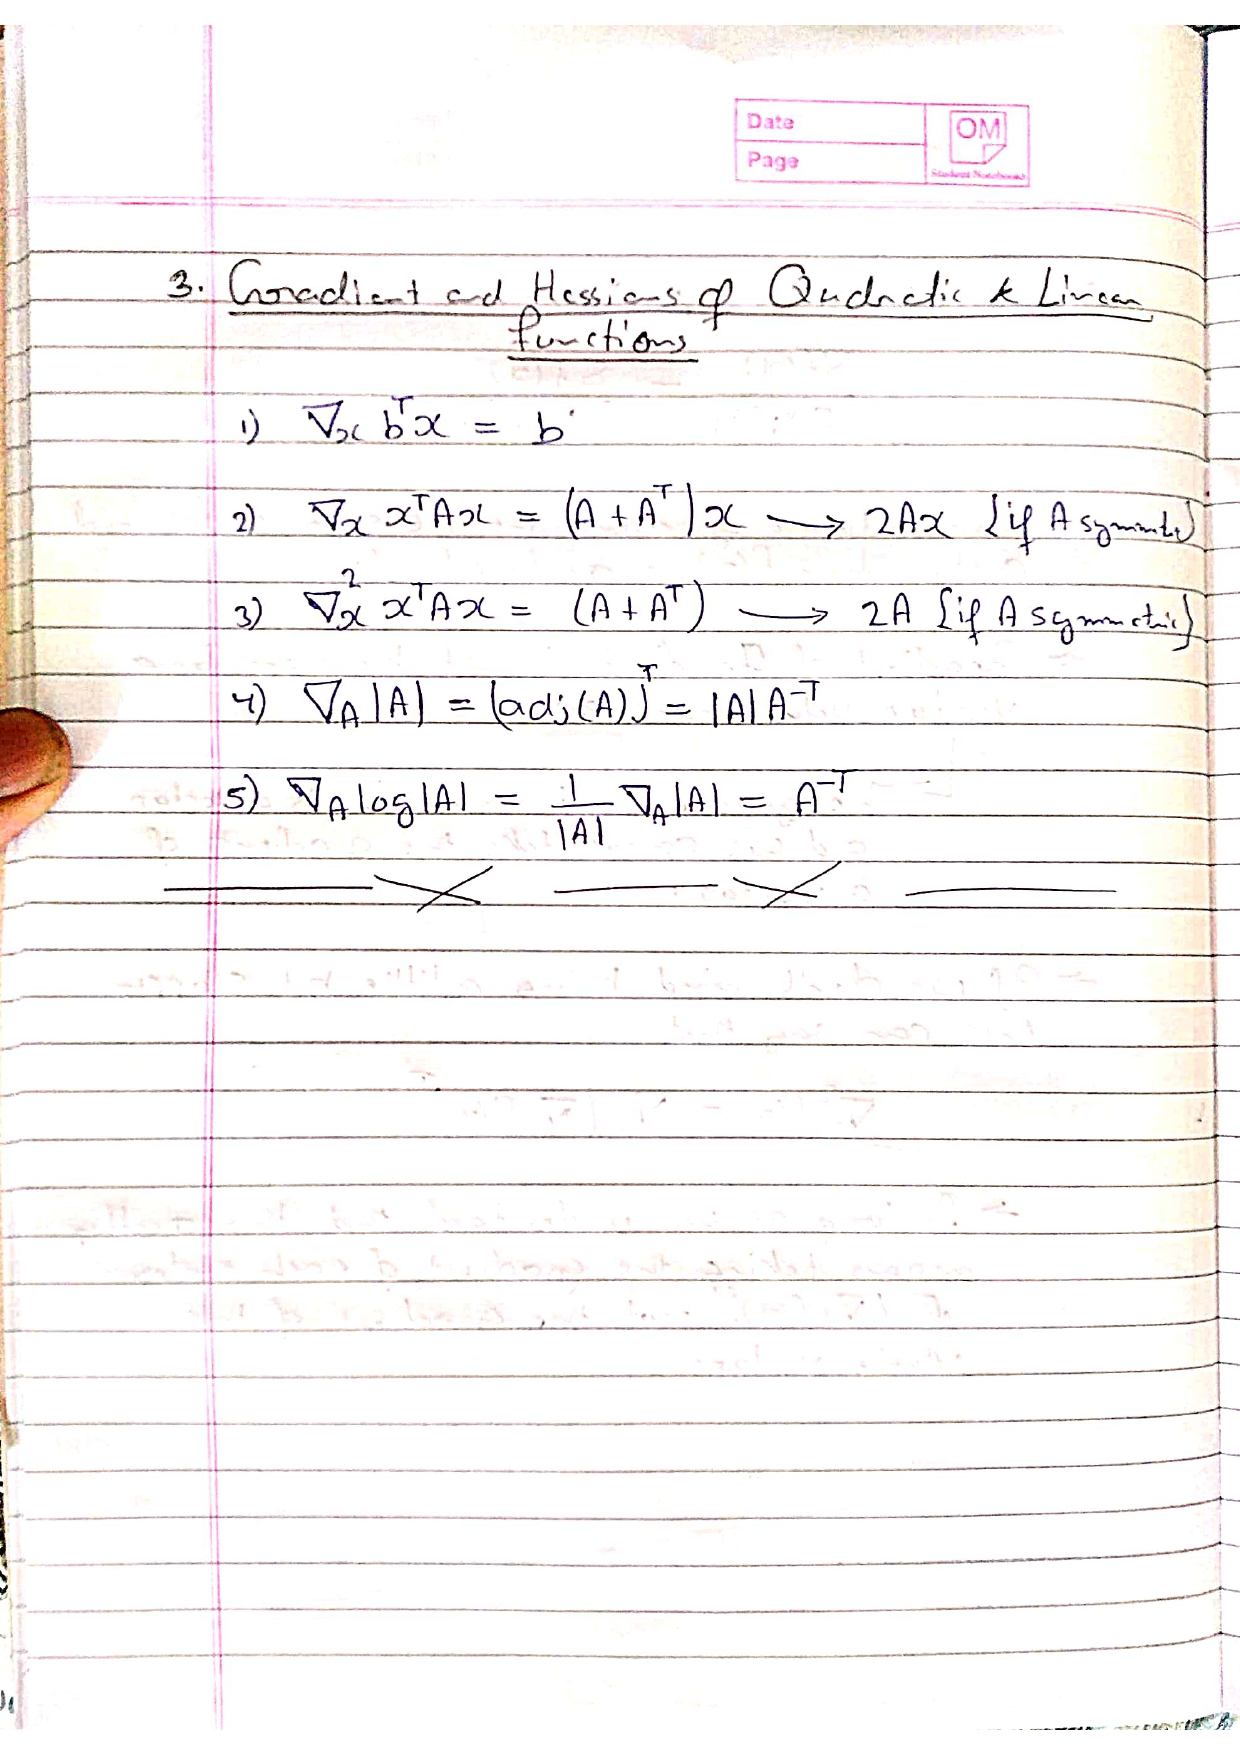 Date
Page
OM
Student Notebooks
3. Gradient and Hessians of Qudratic & Linear
functions
1) ∇ₓ bᵀx = b
2) ∇ₓ xᵀAx = (A + Aᵀ)x → 2Ax {if A symmetric}
3) ∇ₓ² xᵀAx = (A + Aᵀ) → 2A {if A symmetric}
4) ∇_A |A| = (adj(A))ᵀ = |A| A⁻ᵀ
5) ∇_A log|A| = 1/|A| ∇_A |A| = A⁻ᵀ